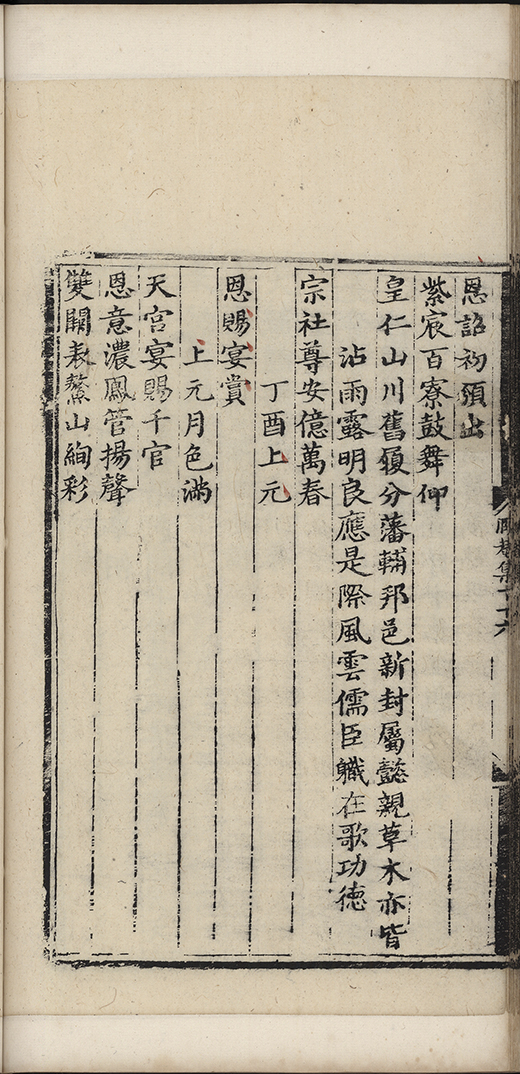 恩詔初頒出
紫宸百寮鼓舞仰
皇仁山川舊履分藩輔邦邑新封屬懿親草木亦皆
沾雨露明良應是際風雲儒臣職在歌功德
宗社尊安億萬春
丁酉上元
恩賜宴賞
上元月色滿
天宮宴賜千官
恩意濃鳳管揚聲
雙闕表鰲山絢彩